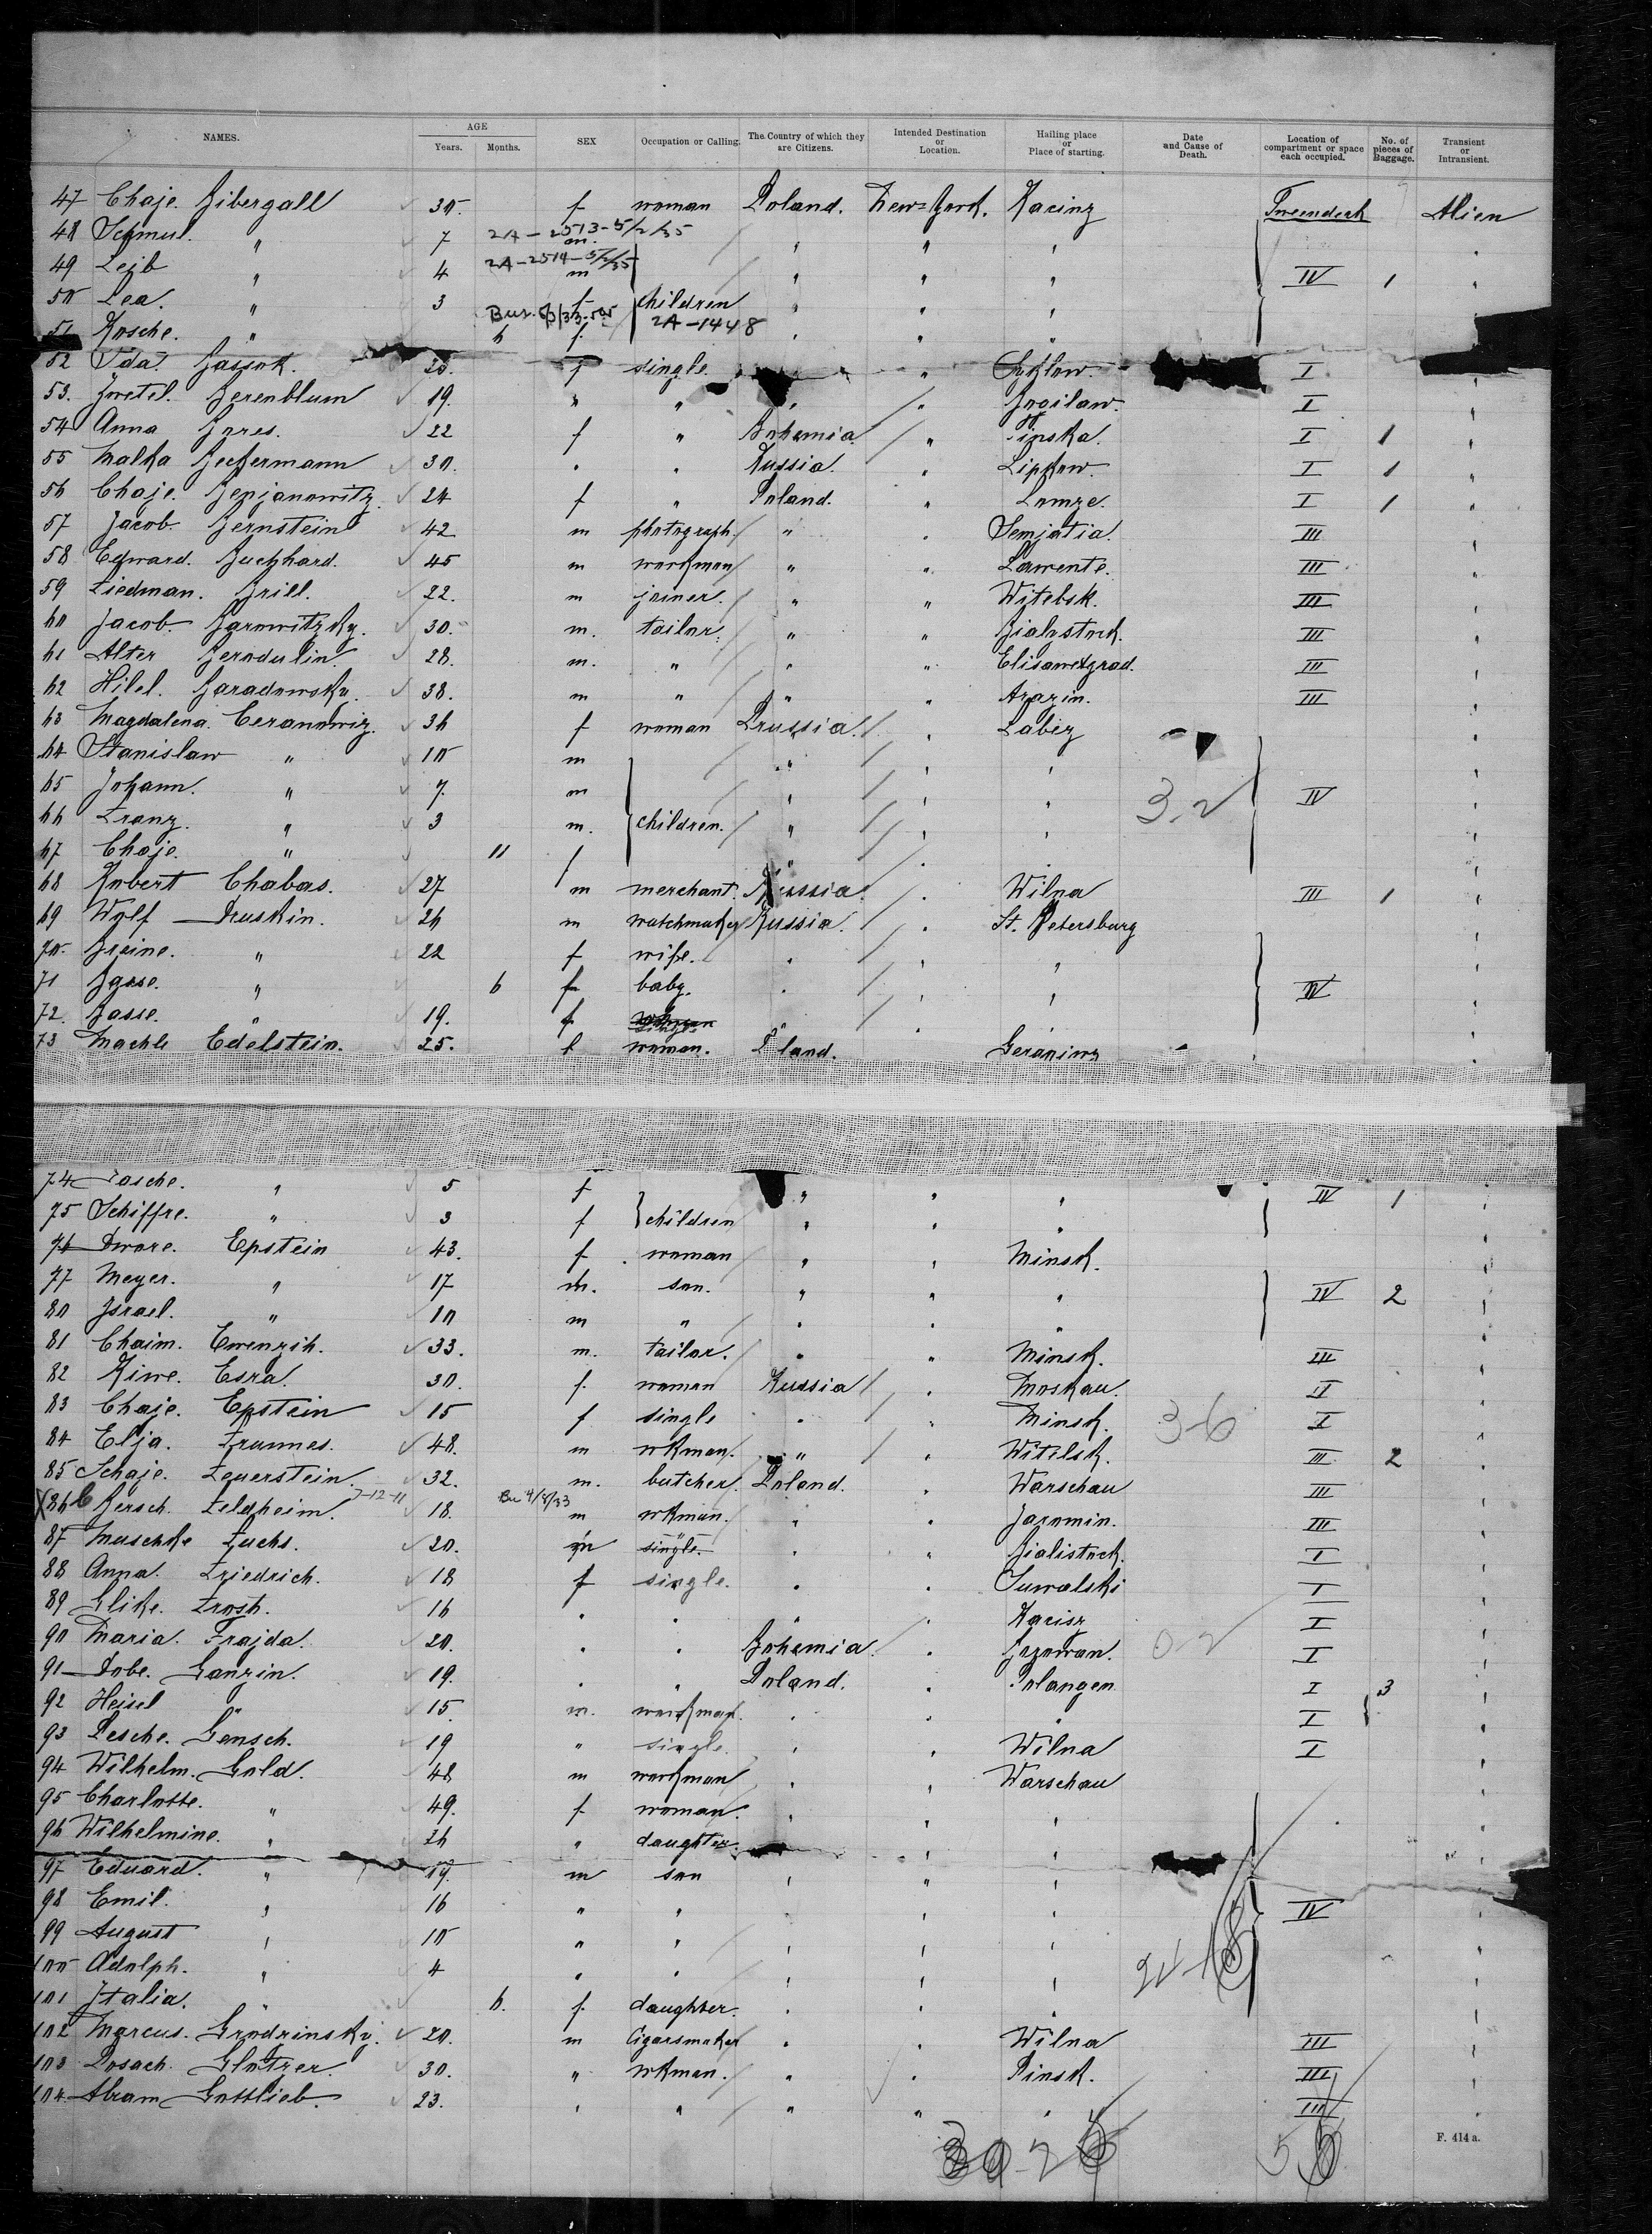 NAMES. AGE Years. Months. SEX Occupation or Calling. The Country of which they are Citizens. Intended Destination or Location. Hailing place or Place of starting. Date and Cause of Death. Location of compartment or space each occupied. No. of pieces of Baggage. Transient or Intransient.
47 Chaje. Bibergall 30. f woman Poland. New-York. Racinz Tweendeck Alien
48 Schmul. " 7 2A-2513-5/2/35 m. " " "
49 Lejb " 4 2A-2514-5/2/35 m " " " IV 1 "
50 Lea. " 3 f children " " "
51 Rosche. " 6 f. 2A-1448 " " "
52 Ida. Bassok. 20. f single. " I "
53. Zwetel. Berenblum 19. " " " " I "
54 Anna Bores. 22 f " Bohemia " I 1 "
55 Malka Beckermann 30. " " Russia. " Lipkow I 1 "
56 Chaje. 24 f " Poland. " Lomze. I 1 "
57 Jacob. Bernstein 42 m photograph. " " Semjatia. III "
58 Edward. Buchhard. 45 m workman " " Lawente. III "
59 Fiedman. Brill. 22. m joiner. " " Witebsk. III "
60 Jacob. Barowitzky. 30. m. tailor. " " Bialystock. III "
61 Alter Berodulin 28. m. " " " Elisawetgrad. III "
62 Hilel. Baradowsky. 38. m " " " Arazin. III "
63 Magdalena. Ceranowiz. 36 f woman Prussia. " Labiz "
64 Stanislaw " 10 m " " " "
65 Johann. " 7. m " " " IV "
66 Franz. " 3 m. children. " " " "
67 Chaje. " 11 f " " "
68 Robert Chabas. 27 m merchant. Russia. " Wilna III 1 "
69 Wolf Druskin. 26 m watchmaker Russia. " St. Petersburg
70. Breine. " 22 f wife. " " " "
71 " 6 f baby. " " " IV "
72. Basse. " 19. f. single. " " " "
73 Machle Edelstein. 25. f woman. Poland. "
74 Dosche. " 5 f " " " IV 1 "
75 Schiffre. " 3 f children " " " "
76 Dwore. Epstein 43. f. woman " " Minsk. "
77 Meyer. " 17 m. son. " " " IV 2 "
80 Israel. " 10 m " " " " "
81 Chaim. Ewenzih. 33. m. tailor. " " Minsk. III "
82 Riwe. Esra. 30. f. woman Russia " Moskau. II "
83 Chaje. Epstein 15 f single " " Minsk. 3-6 I "
84 Elja. Frumes. 48. m wkman. " " Witelsk. III 2 "
85 Schaje. Feuerstein. 32. m. butcher. Poland. " Warschau III "
X 86 Hersch. Feldheim. 7-12-11 18. m wkman. " " Jaromin. III "
87 Muschke Fuchs. 20. m single. " " Bialistock. I "
88 Anna. Friedrich. 18 f single. " " Suwalski I "
89 Glike. Frosh. 16 " " " " Racisz I "
90 Maria. Frajda. 20. " " Bohemia. " I "
91 Dobe. Ganzin. 19. " " Poland. " Polangen I 3 "
92 Heisel " 15. m. workman. " " " I "
93 Pesche. Gensch. 19 " single. " " Wilna I "
94 Wilhelm. Gold. 48 m workman " " Warschau "
95 Charlotte. " 49. f woman. " " " "
96 Wilhelmine. " 26 " daughter. " " " "
97 Eduard. " 19. m son " " " "
98 Emil. " 16 " " " " " IV "
99 August " 10 " " " " " "
100 Adolph. " 4 " " " " " "
101 Italia. " 6. f. daughter. " " " "
102 Marcus. Grodzinsky. 20. m Cigarsmaker " " Wilna III "
103 Posach Glotzer. 30. " wkman. " " Pinsk. III "
104 Abram Gottlieb. 23. " " " " " III "
F. 414 a.